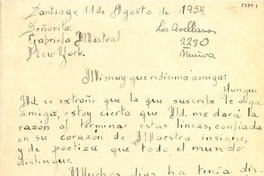 Santiago, 11 de Agosto de 1954
Señorita
Gabriela Mistral
New York.
Los Avellanos
2230
Ñuñoa
Mi muy queridísima amiga:
Aunque
Ud. se extrañe que la que suscribe le diga
amiga, estoy cierta que Ud. me dará la
razón al terminar estas líneas, confiada
en su corazón de Maestra insigne,
y de poetiza que todo el mundo
distingue.
Muchos días ha tenía